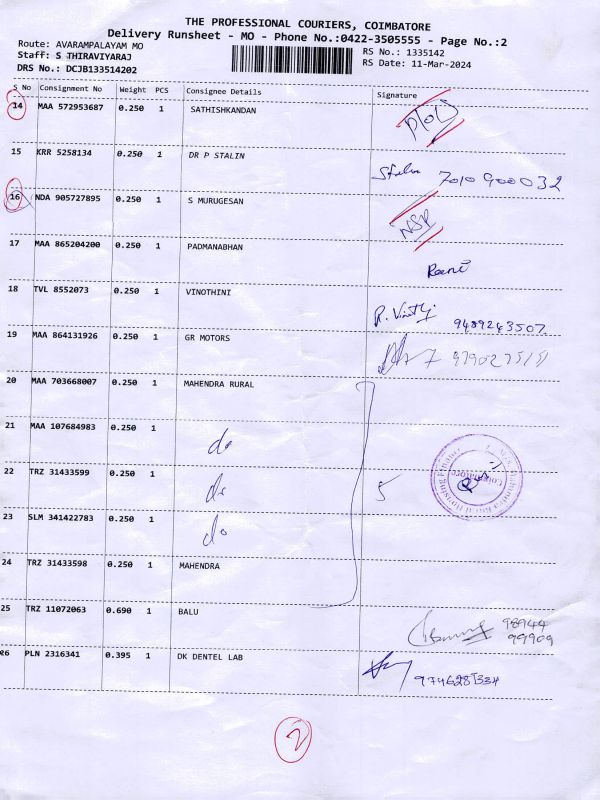 THE PROFESSIONAL COURIERS, COIMBATORE
Delivery Runsheet - MO - Phone No.:0422-3505555 - Page No.:2
Route: AVARAMPALAYAM MO
Staff: S THIRAVIYARAJ
DRS No.: DCJB133514202
RS No.: 1335142
RS Date: 11-Mar-2024
S No Consignment No Weight PCS Consignee Details Signature
14 MAA 572953687 0.250 1 SATHISHKANDAN
15 KRR 5258134 0.250 1 DR P STALIN Stalin 7010900032
16 NDA 905727895 0.250 1 S MURUGESAN NSP
17 MAA 865204200 0.250 1 PADMANABHAN
18 TVL 8552073 0.250 1 VINOTHINI 9489243507
19 MAA 864131926 0.250 1 GR MOTORS
20 MAA 703668007 0.250 1 MAHENDRA RURAL
21 MAA 107684983 0.250 1 do
22 TRZ 31433599 0.250 1 do 5
23 SLM 341422783 0.250 1 do
24 TRZ 31433598 0.250 1 MAHENDRA
25 TRZ 11072063 0.690 1 BALU 98944
99909
26 PLN 2316341 0.395 1 DK DENTEL LAB
2